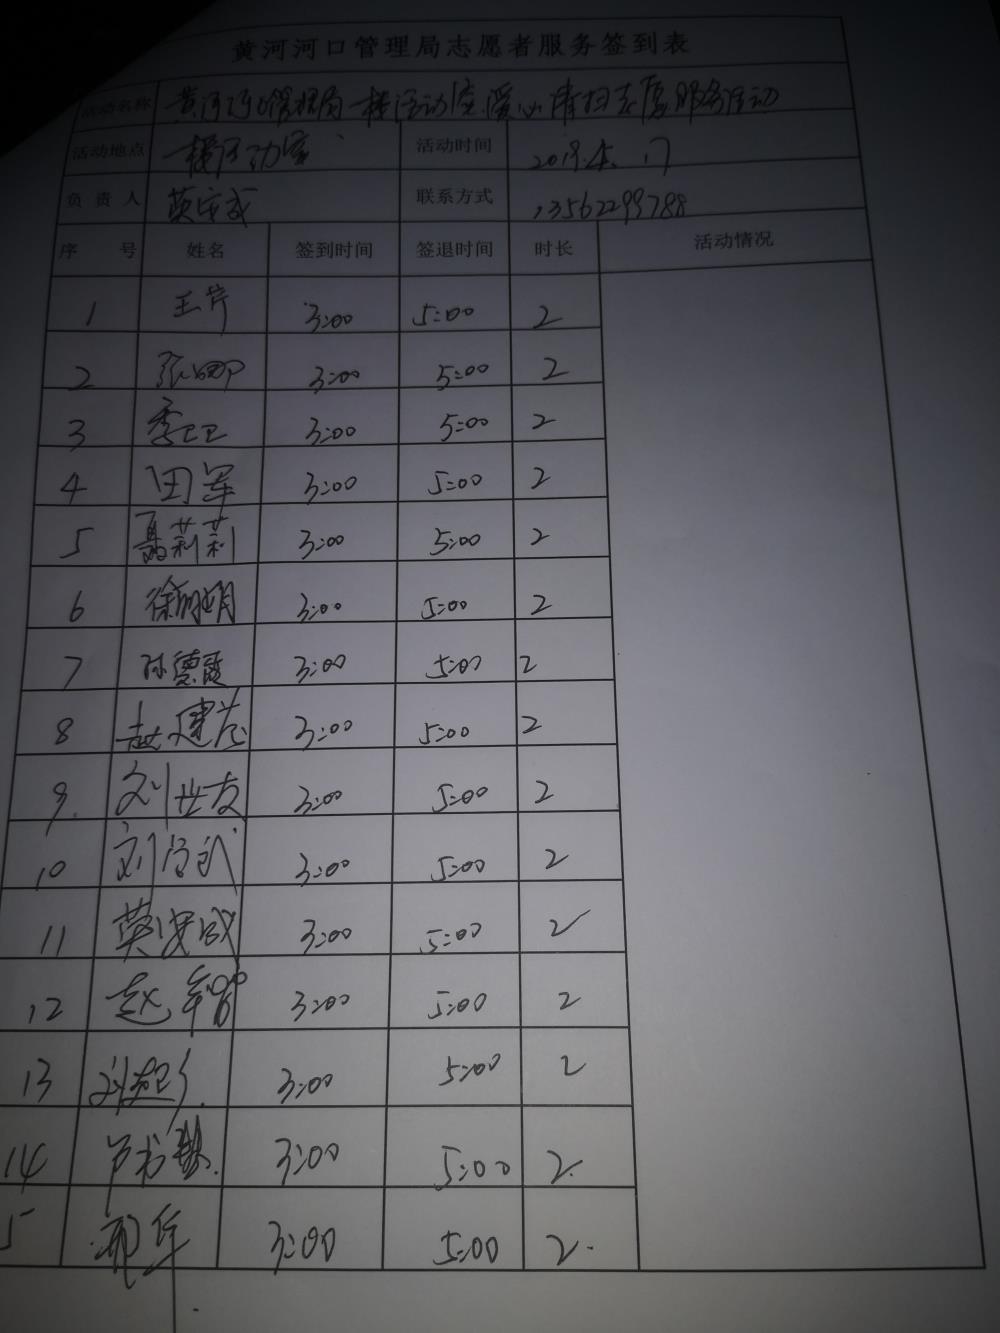 黄河河口管理局志愿者服务签到表
活动名称 黄河河口管理局 楼活动室 爱心清扫志愿服务活动
活动地点 楼活动室 活动时间 2019.4.17
负责人 联系方式 13562299788
序号 姓名 签到时间 签退时间 时长 活动情况
1 王芹 3:00 5:00 2
2 张娜 3:00 5:00 2
3 季卫卫 3:00 5:00 2
4 田军 3:00 5:00 2
5 聂莉莉 3:00 5:00 2
6 徐明娟 3:00 5:00 2
7 孙德霞 3:00 5:00 2
8 赵建 3:00 5:00 2
9. 刘世友 3:00 5:00 2
10 刘 3:00 5:00 2
11 3:00 5:00 2
12 赵 3:00 5:00 2
13 刘 3:00 5:00 2
14 3:00 5:00 2.
15 3:00 5:00 2.